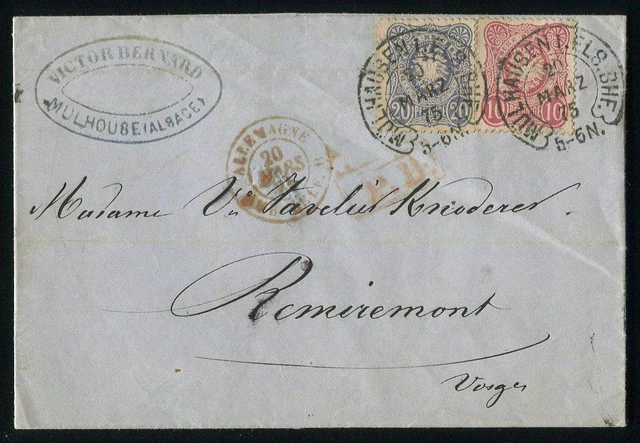 VICTOR BERNARD
MULHOUSE (ALSACE)
MÜLHAUSEN I. ELS.
MÄRZ
75
5-6N.
20 20
MÜLHAUSEN I. ELS. BHF.
20
MÄRZ
75
5-6N.
10 10
ALLEMAGNE
20
MARS
P.D.
Madame Vve
Remiremont
Vosges